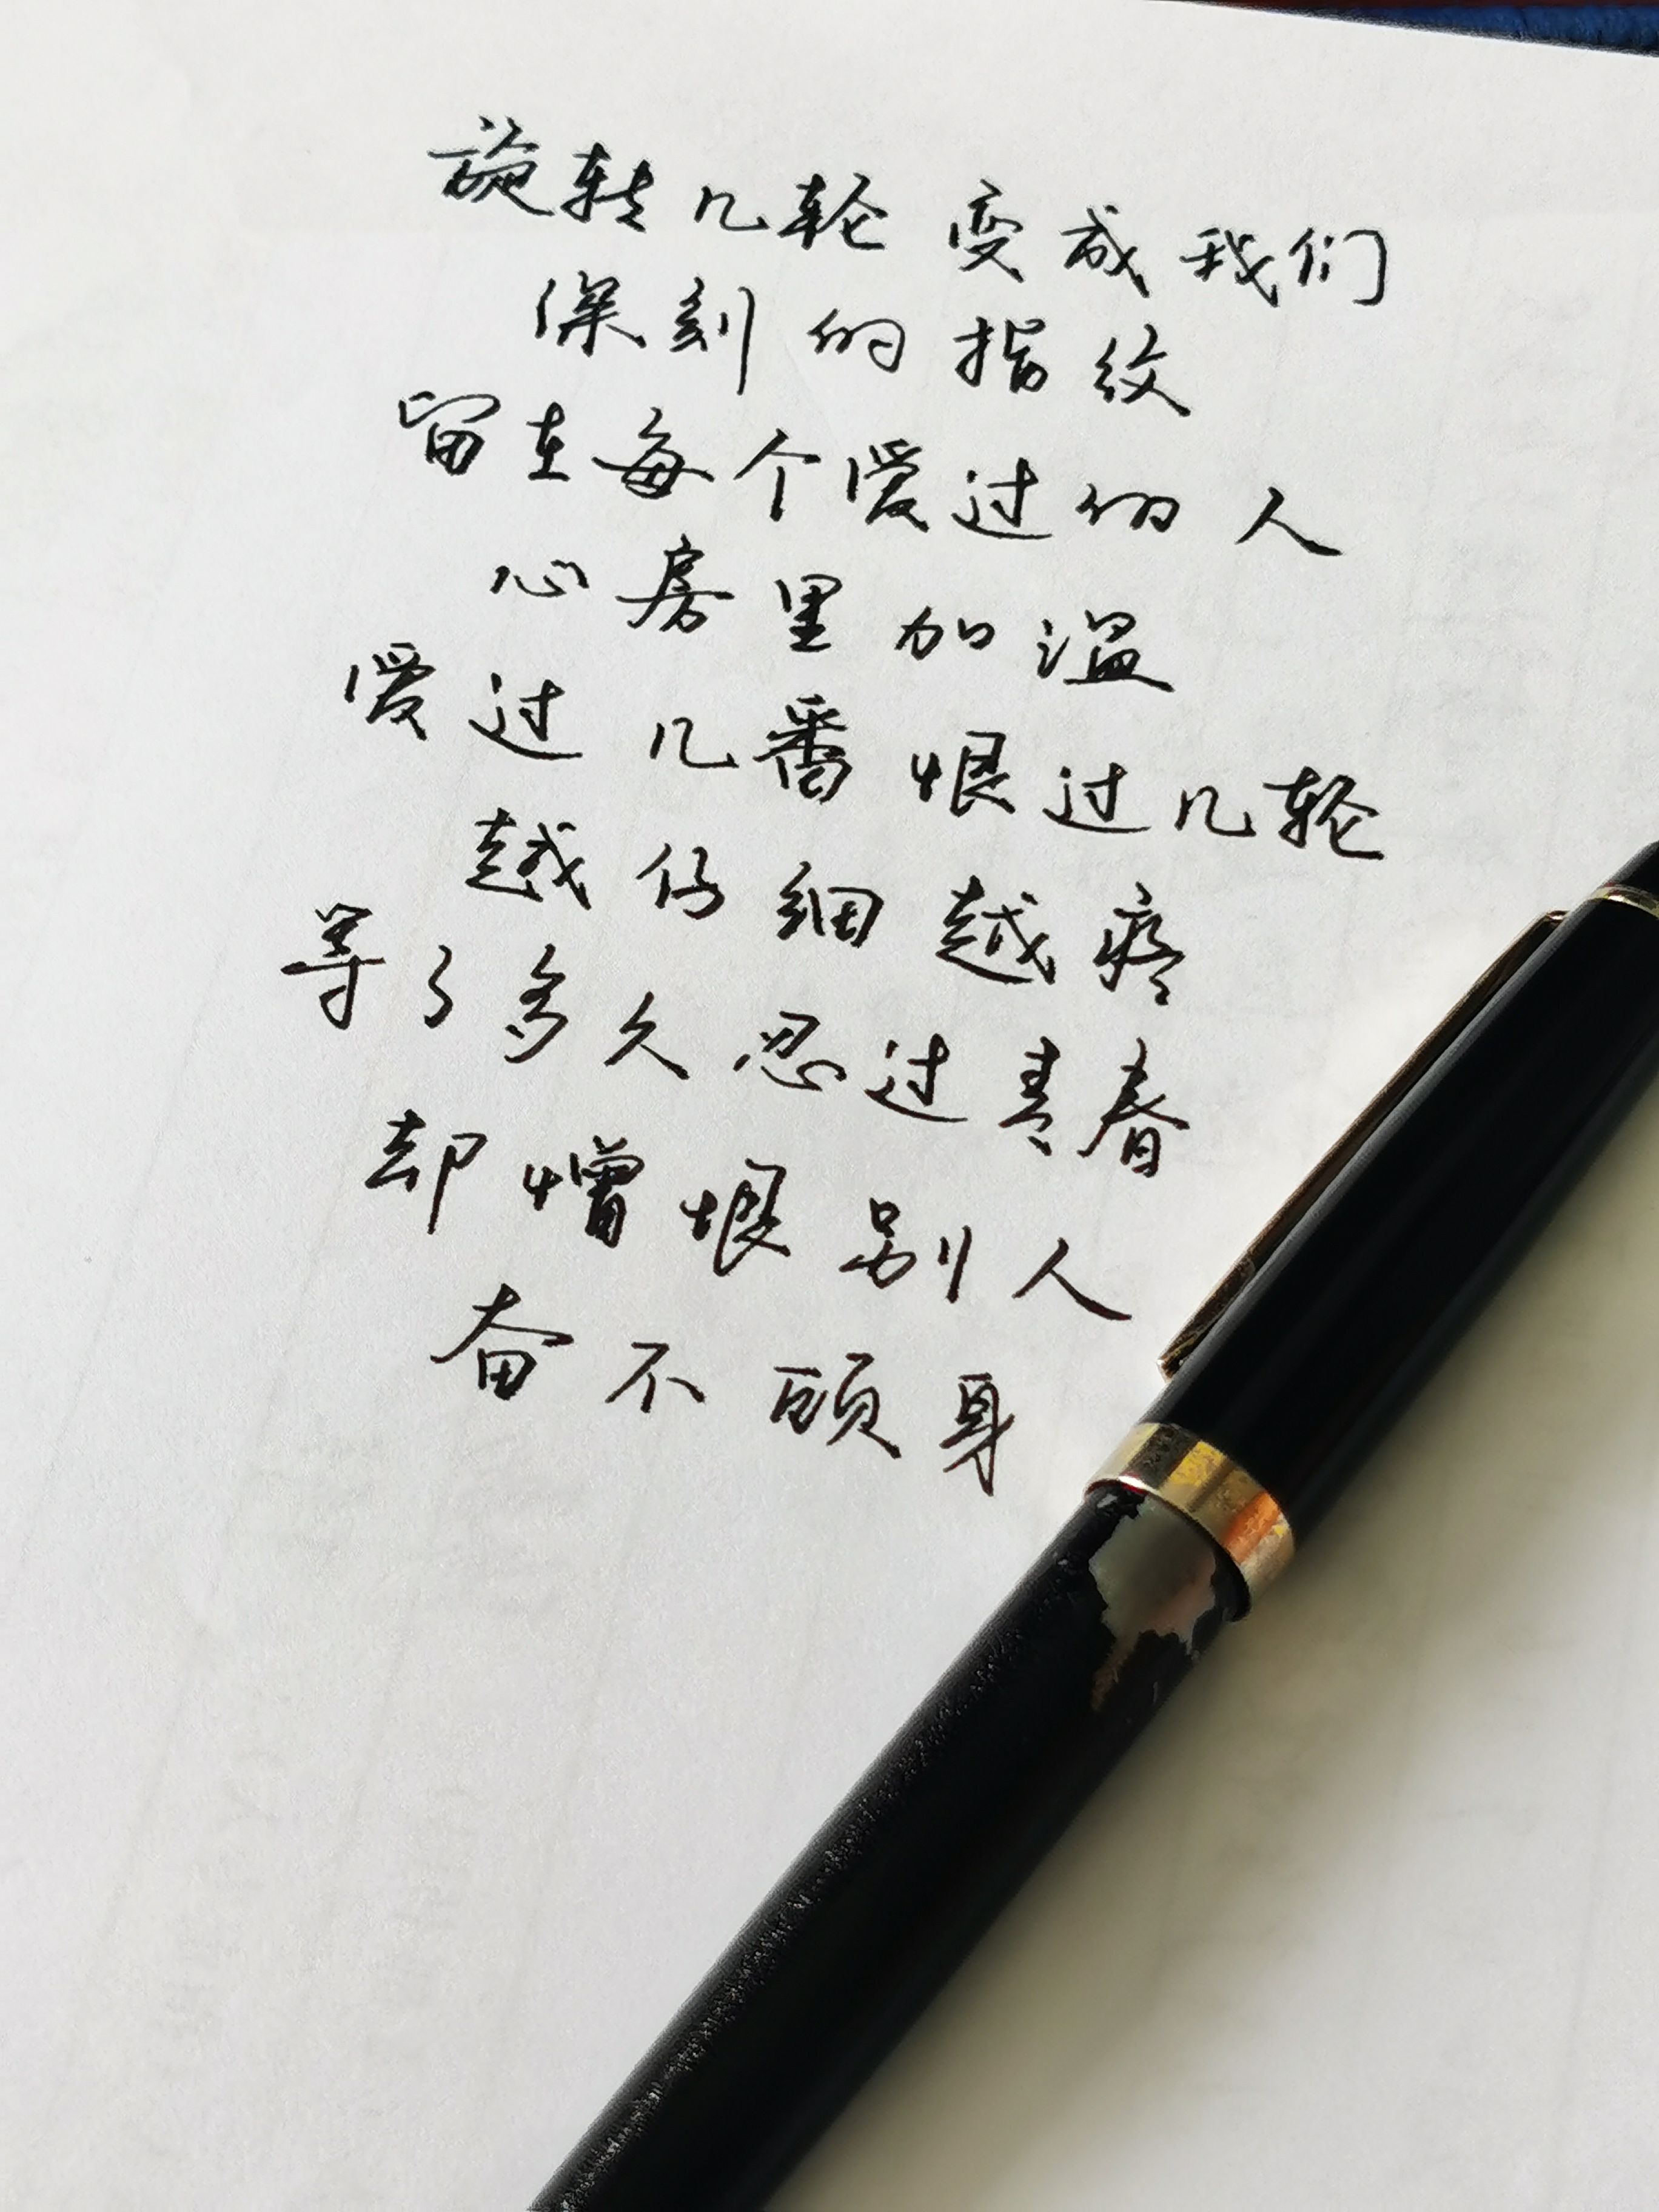 旋转几轮 变成我们
深刻的指纹
留在每个爱过的人
心房里加温
爱过几番 恨过几轮
越仔细越疼
等了多久 忍过青春
却憎恨别人
奋不顾身